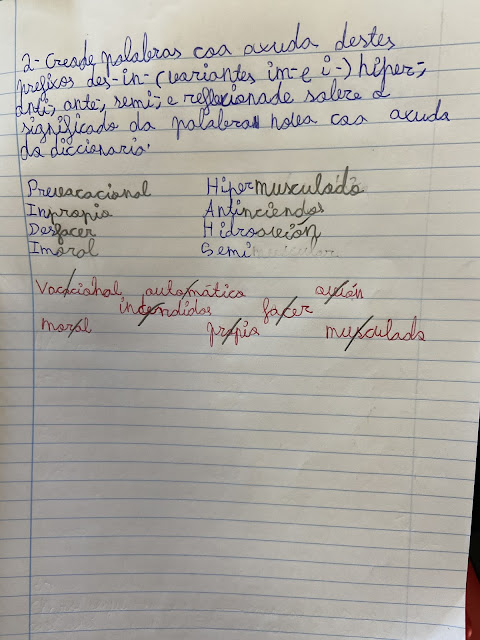 2- Creade palabras coa axuda destes
prefixos des- in- (variantes im- e i-) hiper-,
anti-, ante-, semi-, e reflexionade sobre o
significado da palabra nova coa axuda
do diccionario.
Prevacacional Hipermusculado
Inpropio Antincendos
Desfacer Hidroavión
Imoral Semi
Vacacional automático avión
incendidos facer
moral propio musculado